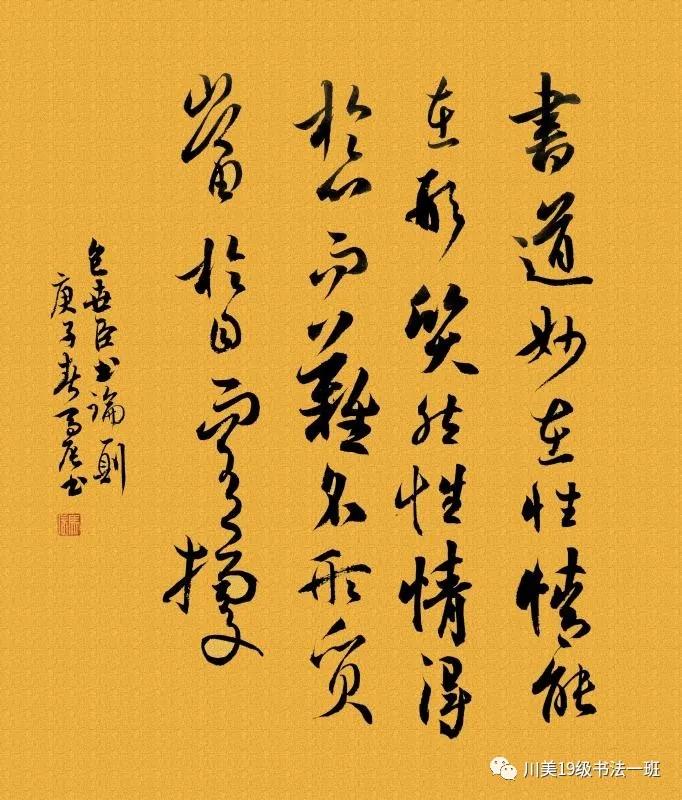 書道妙在性情能
在形質然性情得
於心而難名形質
當於目而有據
包世臣书論一則
庚子春书
川美19级书法一班